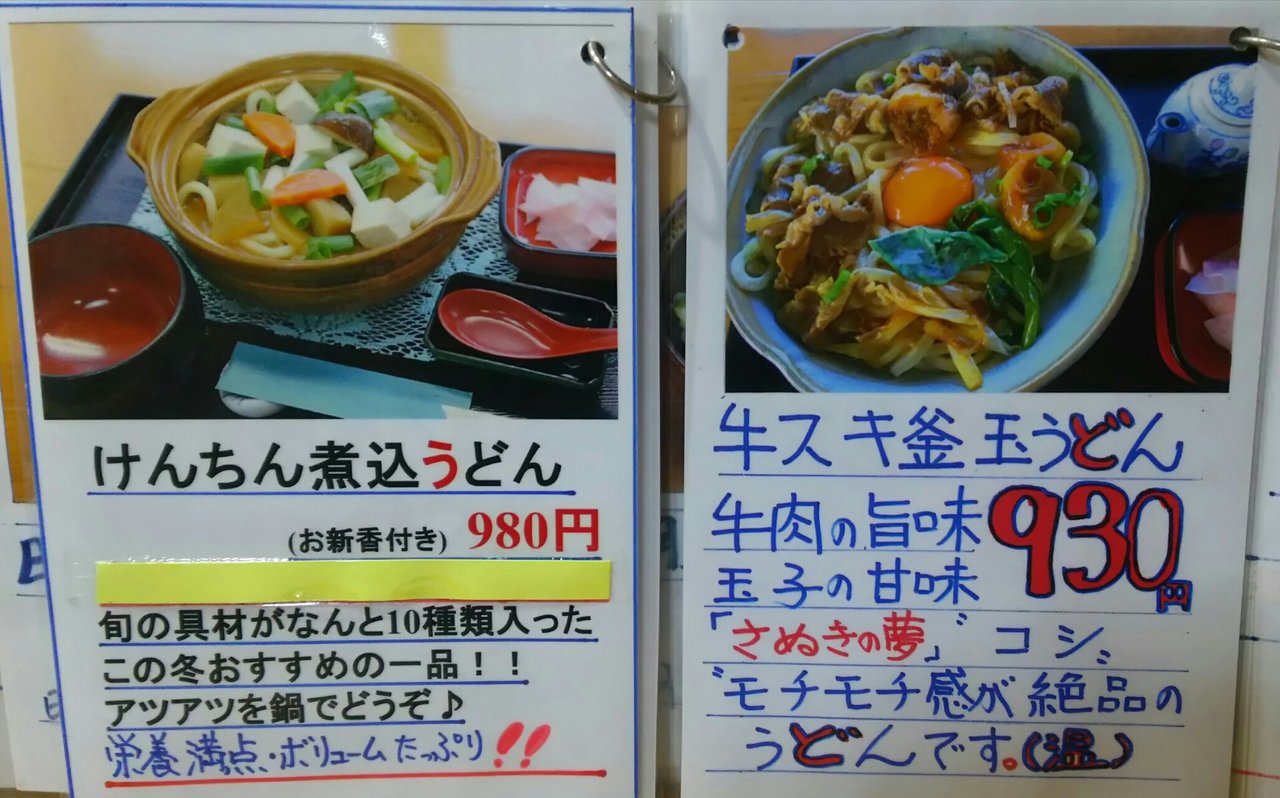 けんちん煮込うどん
(お新香付き) 980円
旬の具材がなんと10種類入った
この冬おすすめの一品!!
アツアツを鍋でどうぞ♪
栄養満点・ボリュームたっぷり!!
牛スキ釜玉うどん
牛肉の旨味
玉子の甘味
930円
「さぬきの夢」〝コシ〟
〝モチモチ感が絶品の
うどんです。(温)